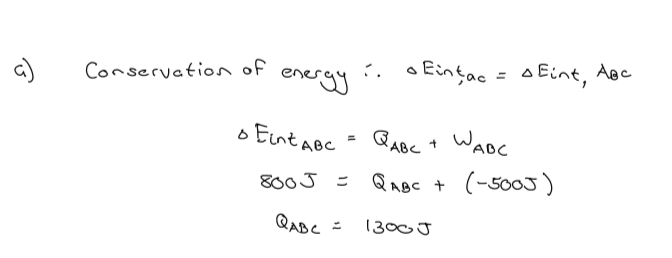 a) Conservation of energy ∴ ΔEint,ac = ΔEint, ABC
ΔEint ABC = QABC + WABC
800J = QABC + (-500J)
QABC = 1300J